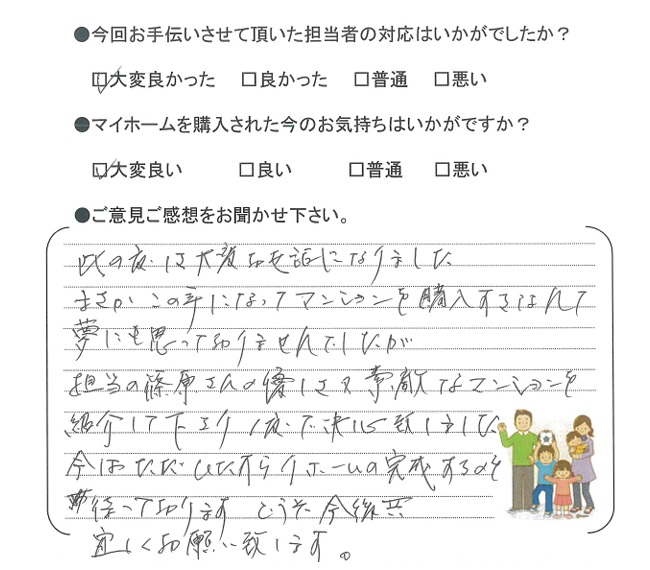 ●今回お手伝いさせて頂いた担当者の対応はいかがでしたか？
☑大変良かった □良かった □普通 □悪い
●マイホームを購入された今のお気持ちはいかがですか？
☑大変良い □良い □普通 □悪い
●ご意見ご感想をお聞かせ下さい。
此の度は大変お世話になりました
まさかこの年になってマンションを購入するなんて
夢にも思っておりませんでしたが
担当の篠原さんの優しさ 素敵なマンションを
紹介して下さり 1度で決心致しました
今はただひたすらリホームの完成するのを
待っております どうぞ今後共
宜しくお願い致します。